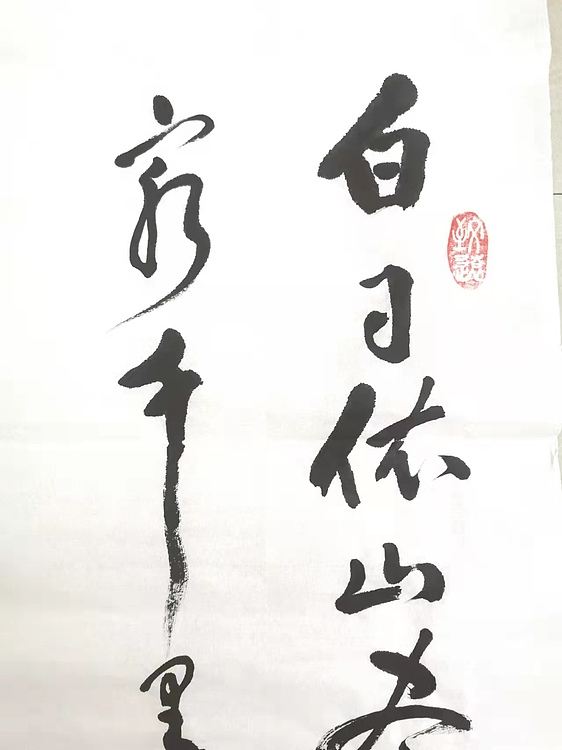 白日依山尽
穷千里